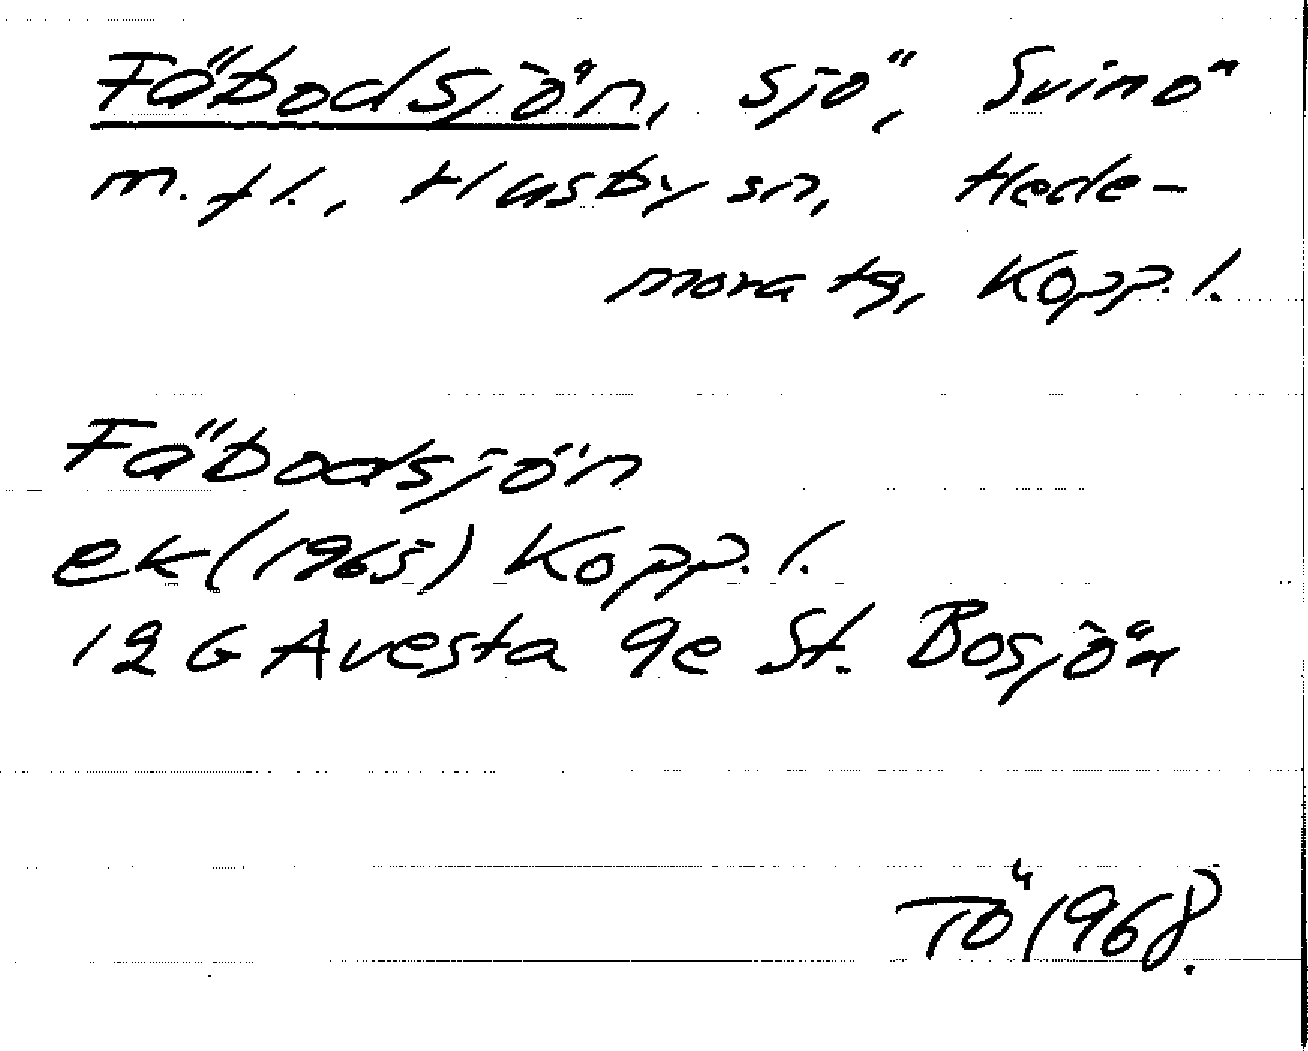 Fäbodsjön, sjö, Svinö
m.fl., Husby sn, Hede-
mora tg, Kopp. l.
Fäbodsjön
ek (1965) Kopp. l.
12G Avesta 9e St. Bosjön
TÖ 1968.